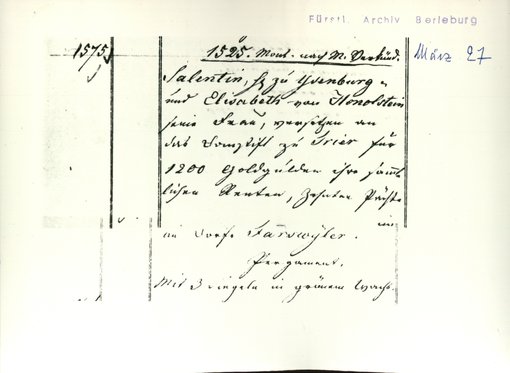 Fürstl. Archiv Berleburg
1575. 1525. Mont. nach M. Verkünd. März 27
Salentin, H. zu Ysenburg
und Elisabeth von Honolstein
seine Frau, versetzen an
das Domstift zu Trier für
1200 Goldgülden ihre sämmt-
lichen Renten, Zehnten Pächte
im
Dorfe Farswyler.
Pergament.
Mit 3 Siegeln in grünem Wachs.